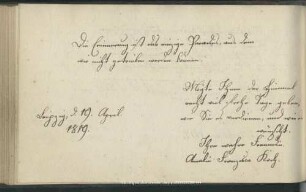 Die Erinnerung ist das einzige Paradies, aus dem
wir nicht getrieben werden können.
Möge Ihnen der Himmel
recht viel solche Tage geben
wie Sie es verdienen, und wie
wünscht
Ihre wahre Freundin
Amalie Koch.
Leipzig, d. 19. April
1819.